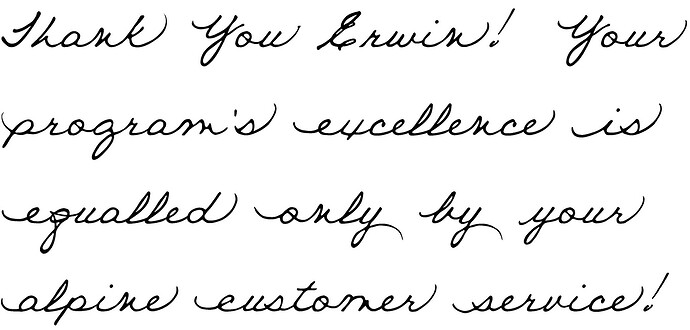 Thank You Erwin! Your
program's excellence is
equalled only by your
alpine customer service!